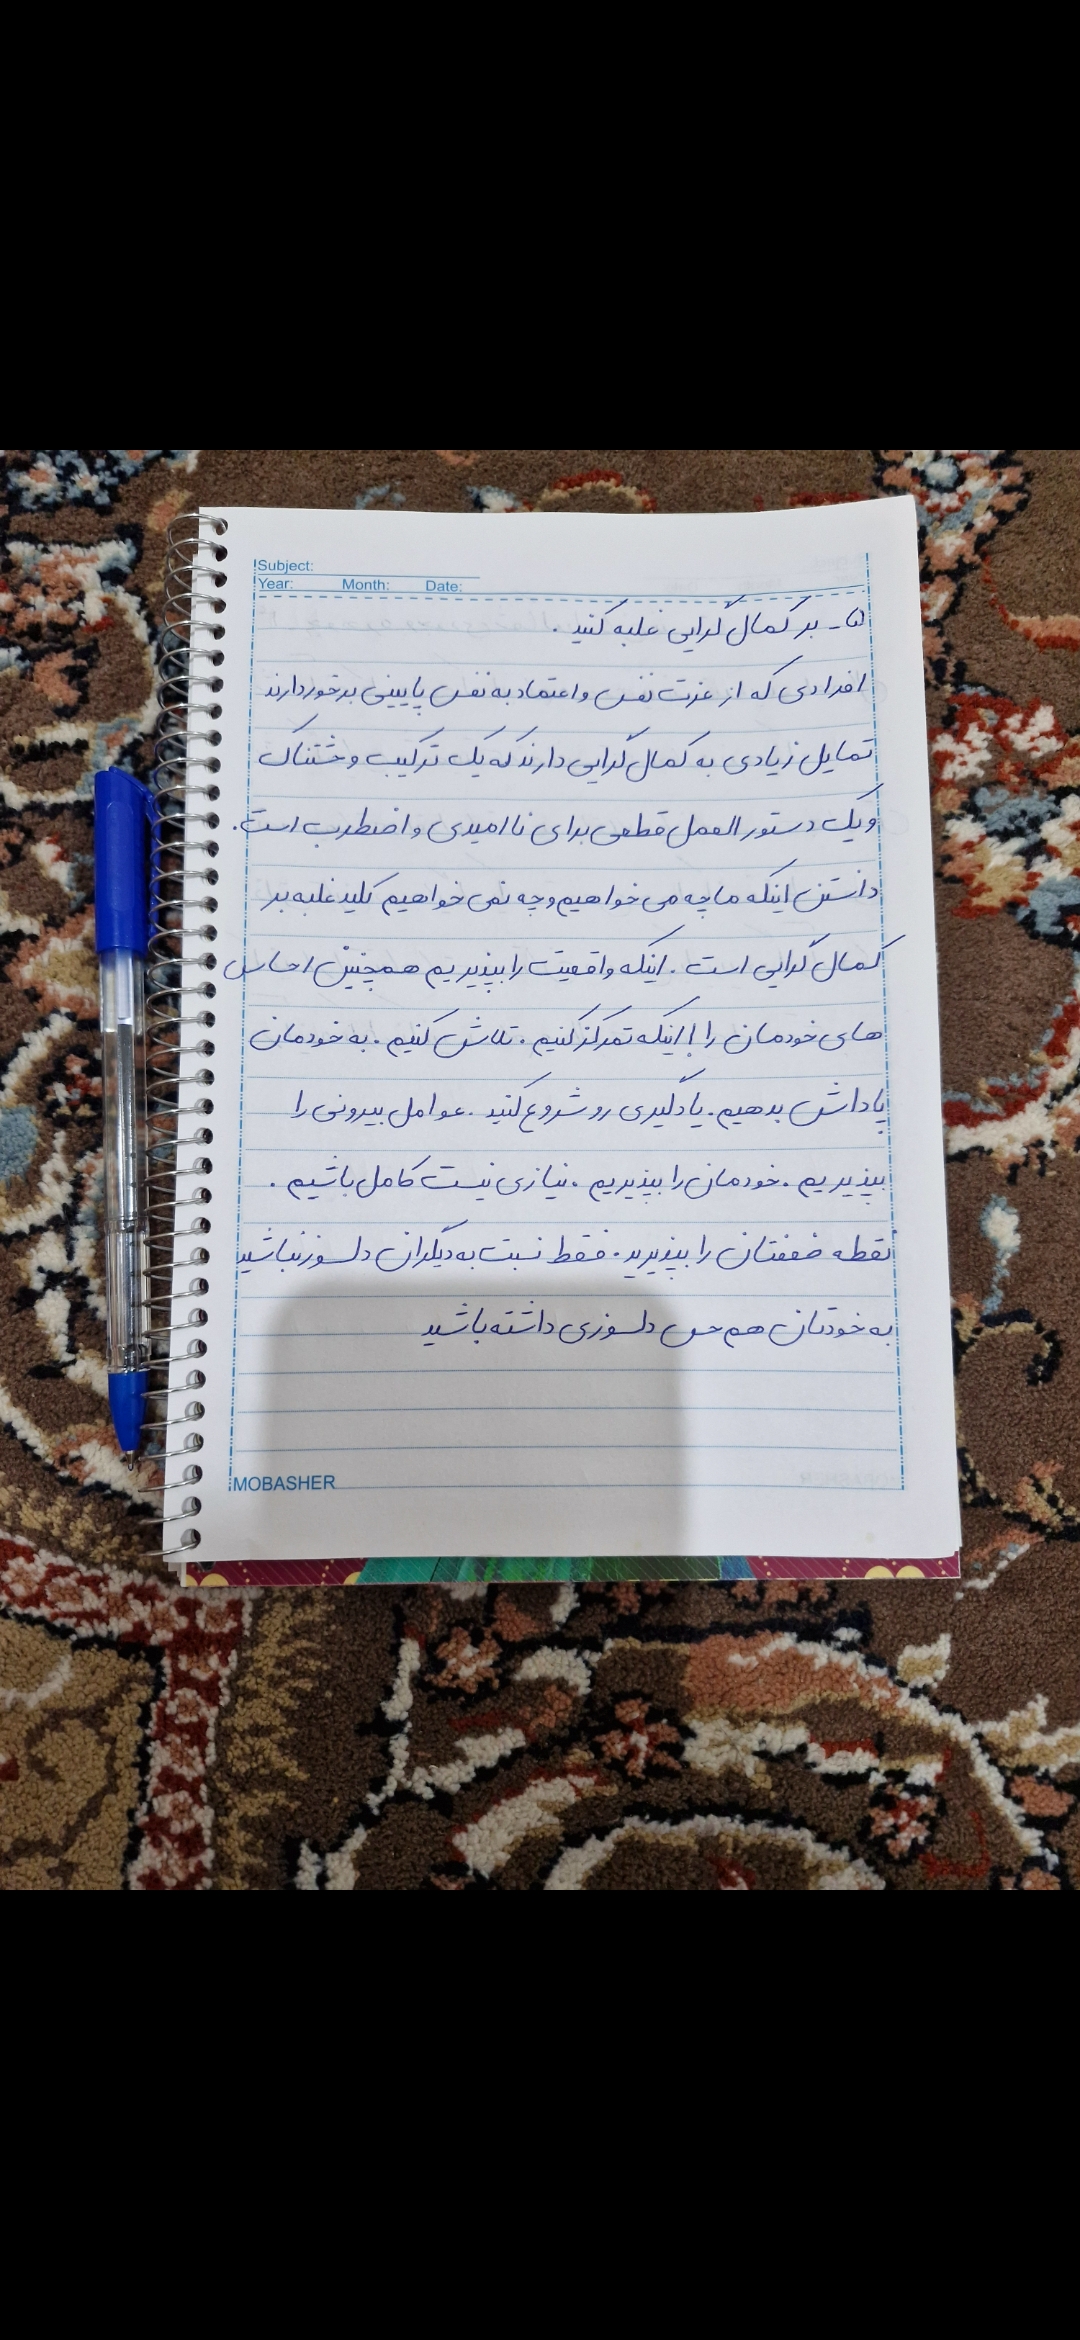 Subject:
Year: Month: Date:
۵- بر کمال گرایی غلبه کنید.
افرادی که از عزت نفس و اعتماد به نفس پایینی برخوردارند
تمایل زیادی به کمال گرایی دارند که یک ترکیب وحشتناک
و یک دستور العمل قطعی برای نا امیدی و اضطرب است.
دانستن اینکه ما چه می خواهیم و چه نمی خواهیم کلید غلبه بر
کمال گرایی است. اینکه واقعیت را بپذیریم همچنین احساس
های خودمان را با اینکه تمرکز کنیم. تلاش کنیم. به خودمان
پاداش بدهیم. یادگیری رو شروع کنید. عوامل بیرونی را
بپذیریم. خودمان را بپذیریم. نیازی نیست کامل باشیم.
نقطه ضعفتان را بپذیرید. فقط نسبت به دیگران دلسوز نباشید
به خودتان هم حس دلسوزی داشته باشید
MOBASHER